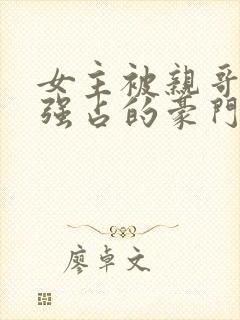 女主被親哥
強占的豪門
廖卓文